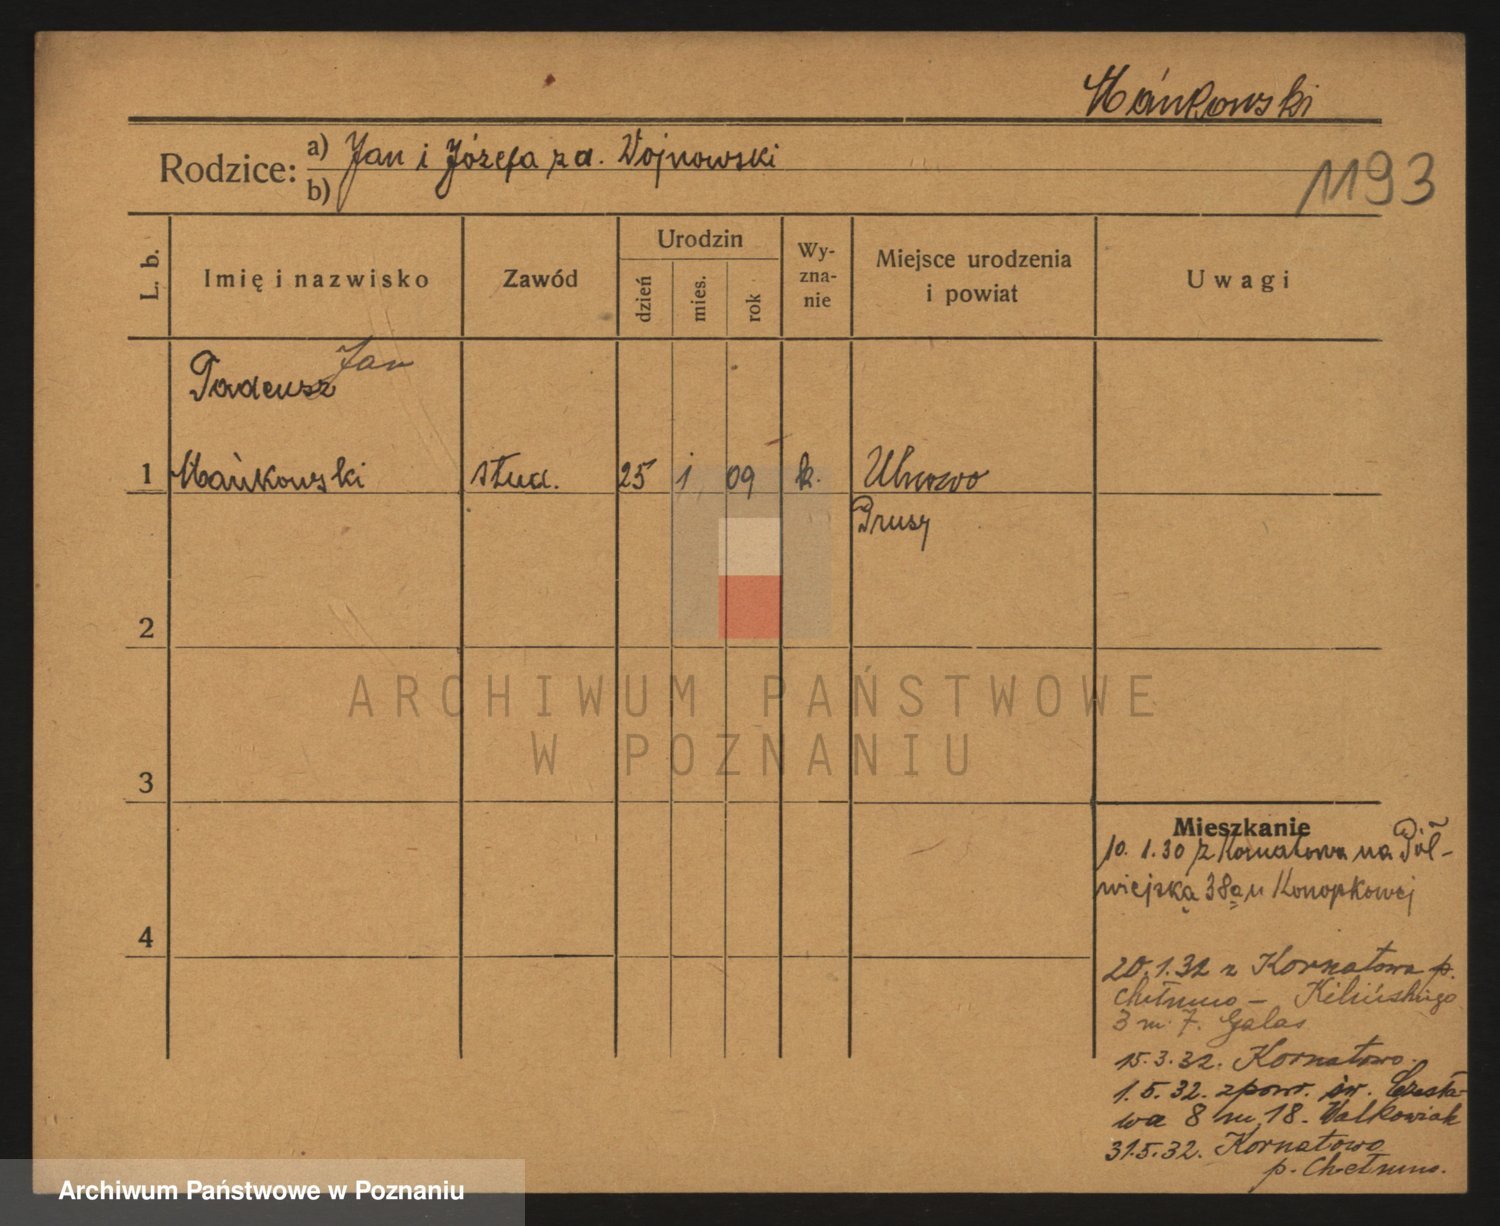 Mańkowski
Rodzice: a) Jan i Józefa z d. Wojnowski
b)
1193
L. b.
Imię i nazwisko
Zawód
Urodzin
dzień
mies.
rok
Wy-
zna-
nie
Miejsce urodzenia
i powiat
Uwagi
Tadeusz Jan
1 Mańkowski stud. 25 1 09 k.
Prusy
2
3
4
ARCHIWUM PAŃSTWOWE
W POZNANIU
Mieszkanie
10. 1.30 z Kornatowa na Pół-
wiejską 38a u Konopkowej
20.1.32 z Kornatowa p.
Chełmno - Kilińskiego
3 m. 7. Galas
15.3.32. Kornatowo.
1.5.32. z pow. św. Czesła-
wa 8 m 18. Walkowiak
31.5.32. Kornatowo
p. Chełmno.
Archiwum Państwowe w Poznaniu